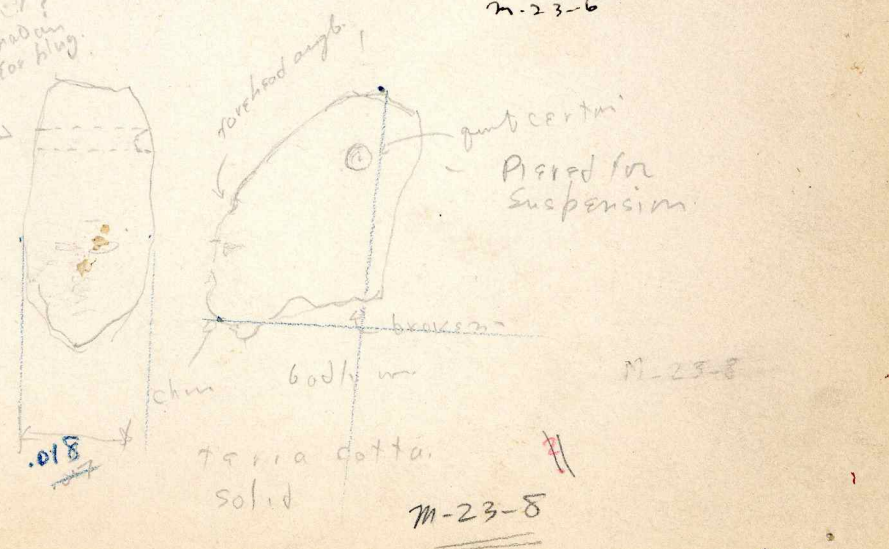 M-23-6
for plug.
forehead angle
Pierced for
Suspension
broken
chin
badly
M-23-8
.018
terra cotta.
solid
M-23-8